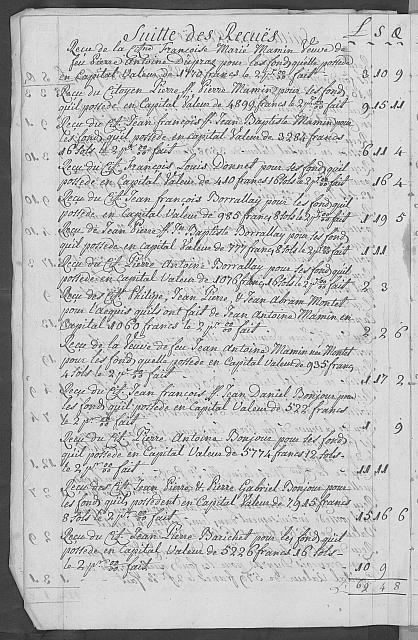 Suitte des Recües £ S d
Reçu de la Cne Françoise Marie Mamin Veuve de
feu Pierre Antoine Dupras pour les fond quelle possede
en Capital Valeur de 1770 francs le 2 pr 00/00 fait 3 10 9
Reçu du Citoyen Pierre ff. Pierre Mamin pour les fond
qu'il possede en Capital Valeur de 4899 francs le 2 pr 00/00 fait 9 15 11
Reçu du Cit. Jean françois ff. Jean Baptiste Mamin pour
les fond qu'il possede en capital Valeur de 3284 francs
16 sols le 2 pr 00/00 fait 6 11 4
Reçu du Cit. François Louis Donnet pour les fond qu'il
possede en Capital Valeur de 410 francs 16 sols le 2 pr 00/00 fait 16 4
Reçu du Cit. Jean françois Borrallay pour les fond qu'il
possede en Capital Valeur de 985 francs 8 sols le 2 pr 00/00 fait 1 19 5
Reçu de Jean Pierre ff. Jn Baptiste Borrallay pour les fond
qu'il possede en Capital Valeur de 777 francs 8 sols le 2 pr 00/00 fait 1 11
Reçu du Cit. Pierre Antoine Borrallay pour les fond qu'il
possede en Capital Valeur de 1076 francs 16 sols le 2 pr 00/00 fait 2 3
Reçu des Cit. Philipe, Jean Pierre, & Jean Abram Montet
pour l'acquis qu'ils ont fait de Jean Antoine Mamin en
Capital 1060 francs le 2 pr 00/00 fait 2 2 6
Reçu de la Veuve de feu Jean Antoine Mamin née Montet
pour les fond quelle possede en Capital Valeur de 935 francs
4 sols le 2 pr 00/00 fait 1 17 2
Reçu du Cit. Jean françois ff. Jean Daniel Bonjour pour
les fond qu'il possede en Capital Valeur de 522 francs
le 2 pr 00/00 fait 1 9
Reçu du Cit. Pierre Antoine Bonjour pour les fond
qu'il possede en Capital Valeur de 5774 francs 12 sols
le 2 pr 00/00 fait 11 11
Reçu des Cit. Jean Pierre, & Pierre Gabriel Bonjour pour
les fond qu'ils possedent en Capital Valeur de 7915 francs
8 sols le 2 pr 00/00 fait 15 16 6
Reçu du Cit. Jean Pierre Barichet pour les fond qu'il
possede en Capital Valeur de 5226 francs 16 sols
le 2 pr 00/00 fait 10 9
£ 69 4 8